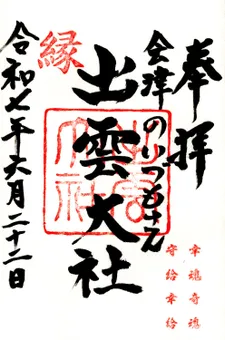 奉拝
会津のいつもさん
出雲大社
縁
令和七年六月二十二日
幸魂奇魂
守給幸給